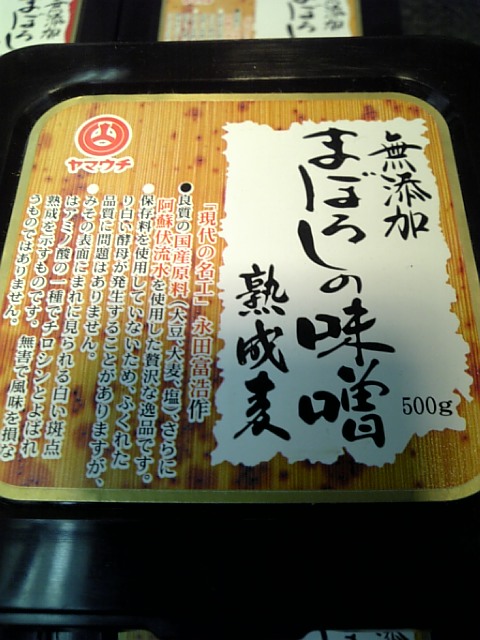 無添加
まぼろしの味噌
熟成麦
500g
ヤマウチ
「現代の名工」永田富浩作
●良質の国産原料(大豆、大麦、塩)さらに
阿蘇伏流水を使用した贅沢な逸品です。
●保存料を使用していないため、ふくれた
り白い酵母が発生することがありますが、
品質に問題はありません。
●みその表面にまれに見られる白い斑点
はアミノ酸の一種でチロシンとよばれ
熟成を示すものです。無害で風味を損な
うものではありません。
無添加
まぼろし